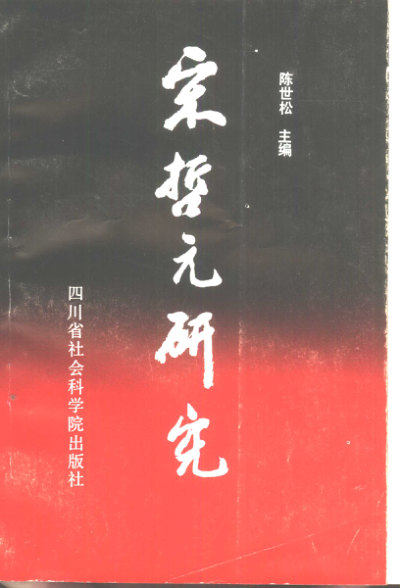 陈世松 主编
宋哲元研究
四川省社会科学院出版社